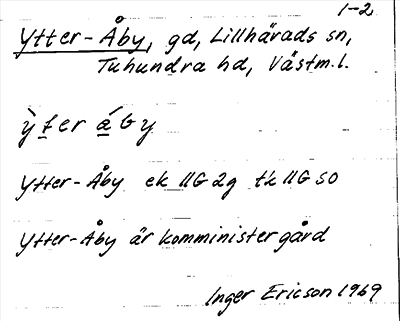 1-2
Ytter-Åby, gd, Lillhärads sn,
Tuhundra hd, Västm.l.
ỳter áby
Ytter-Åby ek UG 2g tk UG SO
Ytter-Åby är komministergård
Inger Ericson 1969